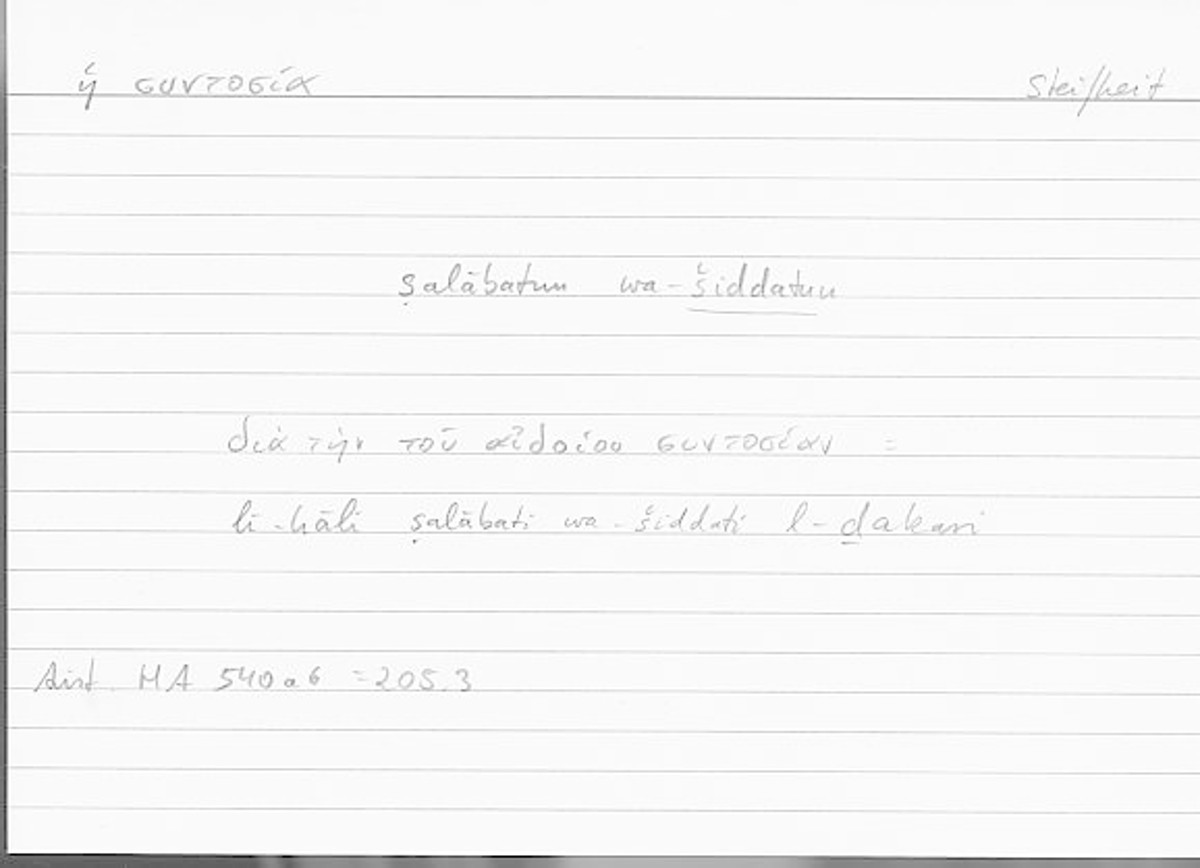 ἡ συντοσία Steifheit
ṣalābatun wa-šiddatun
διὰ τὴν τοῦ αἰδοίου συντοσίαν =
li-ḥāli ṣalābati wa-šiddati l-ḏakari
Arist. HA 540a6 = 205.3